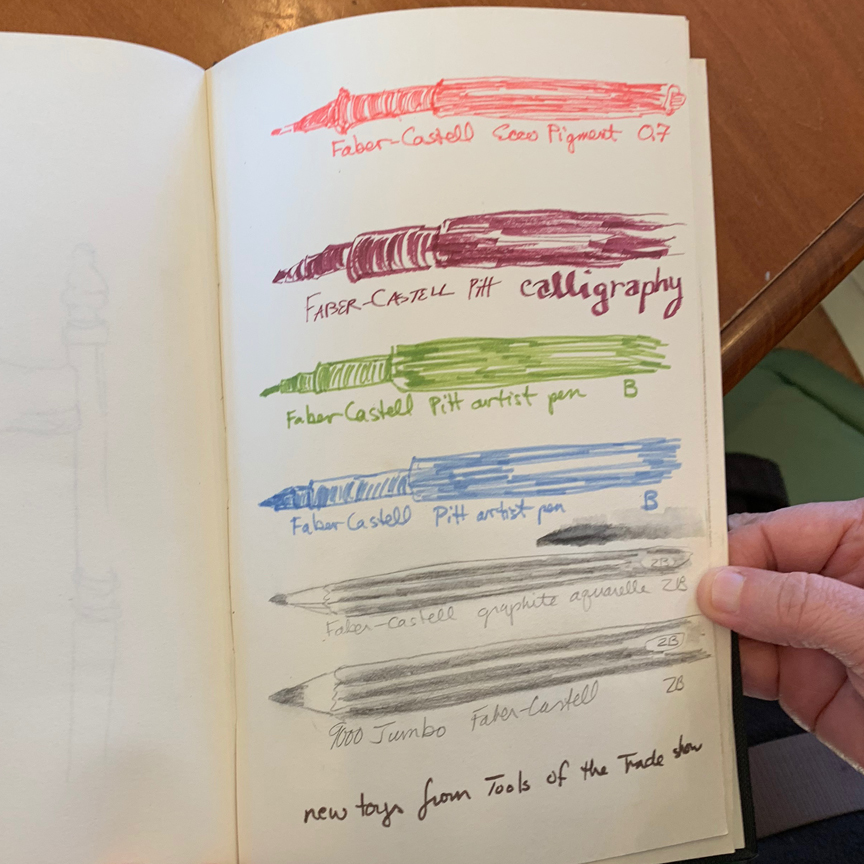 Faber-Castell Ecco Pigment 0.7
FABER-CASTELL Pitt calligraphy
Faber Castell Pitt artist pen B
Faber Castell Pitt artist pen B
2B
Faber-Castell graphite aquarelle 2B
2B
9000 Jumbo Faber-Castell 2B
new toys from Tools of the Trade show